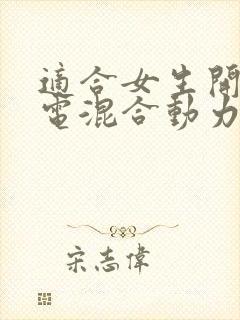 適合女生開
電混合動力
宋志偉